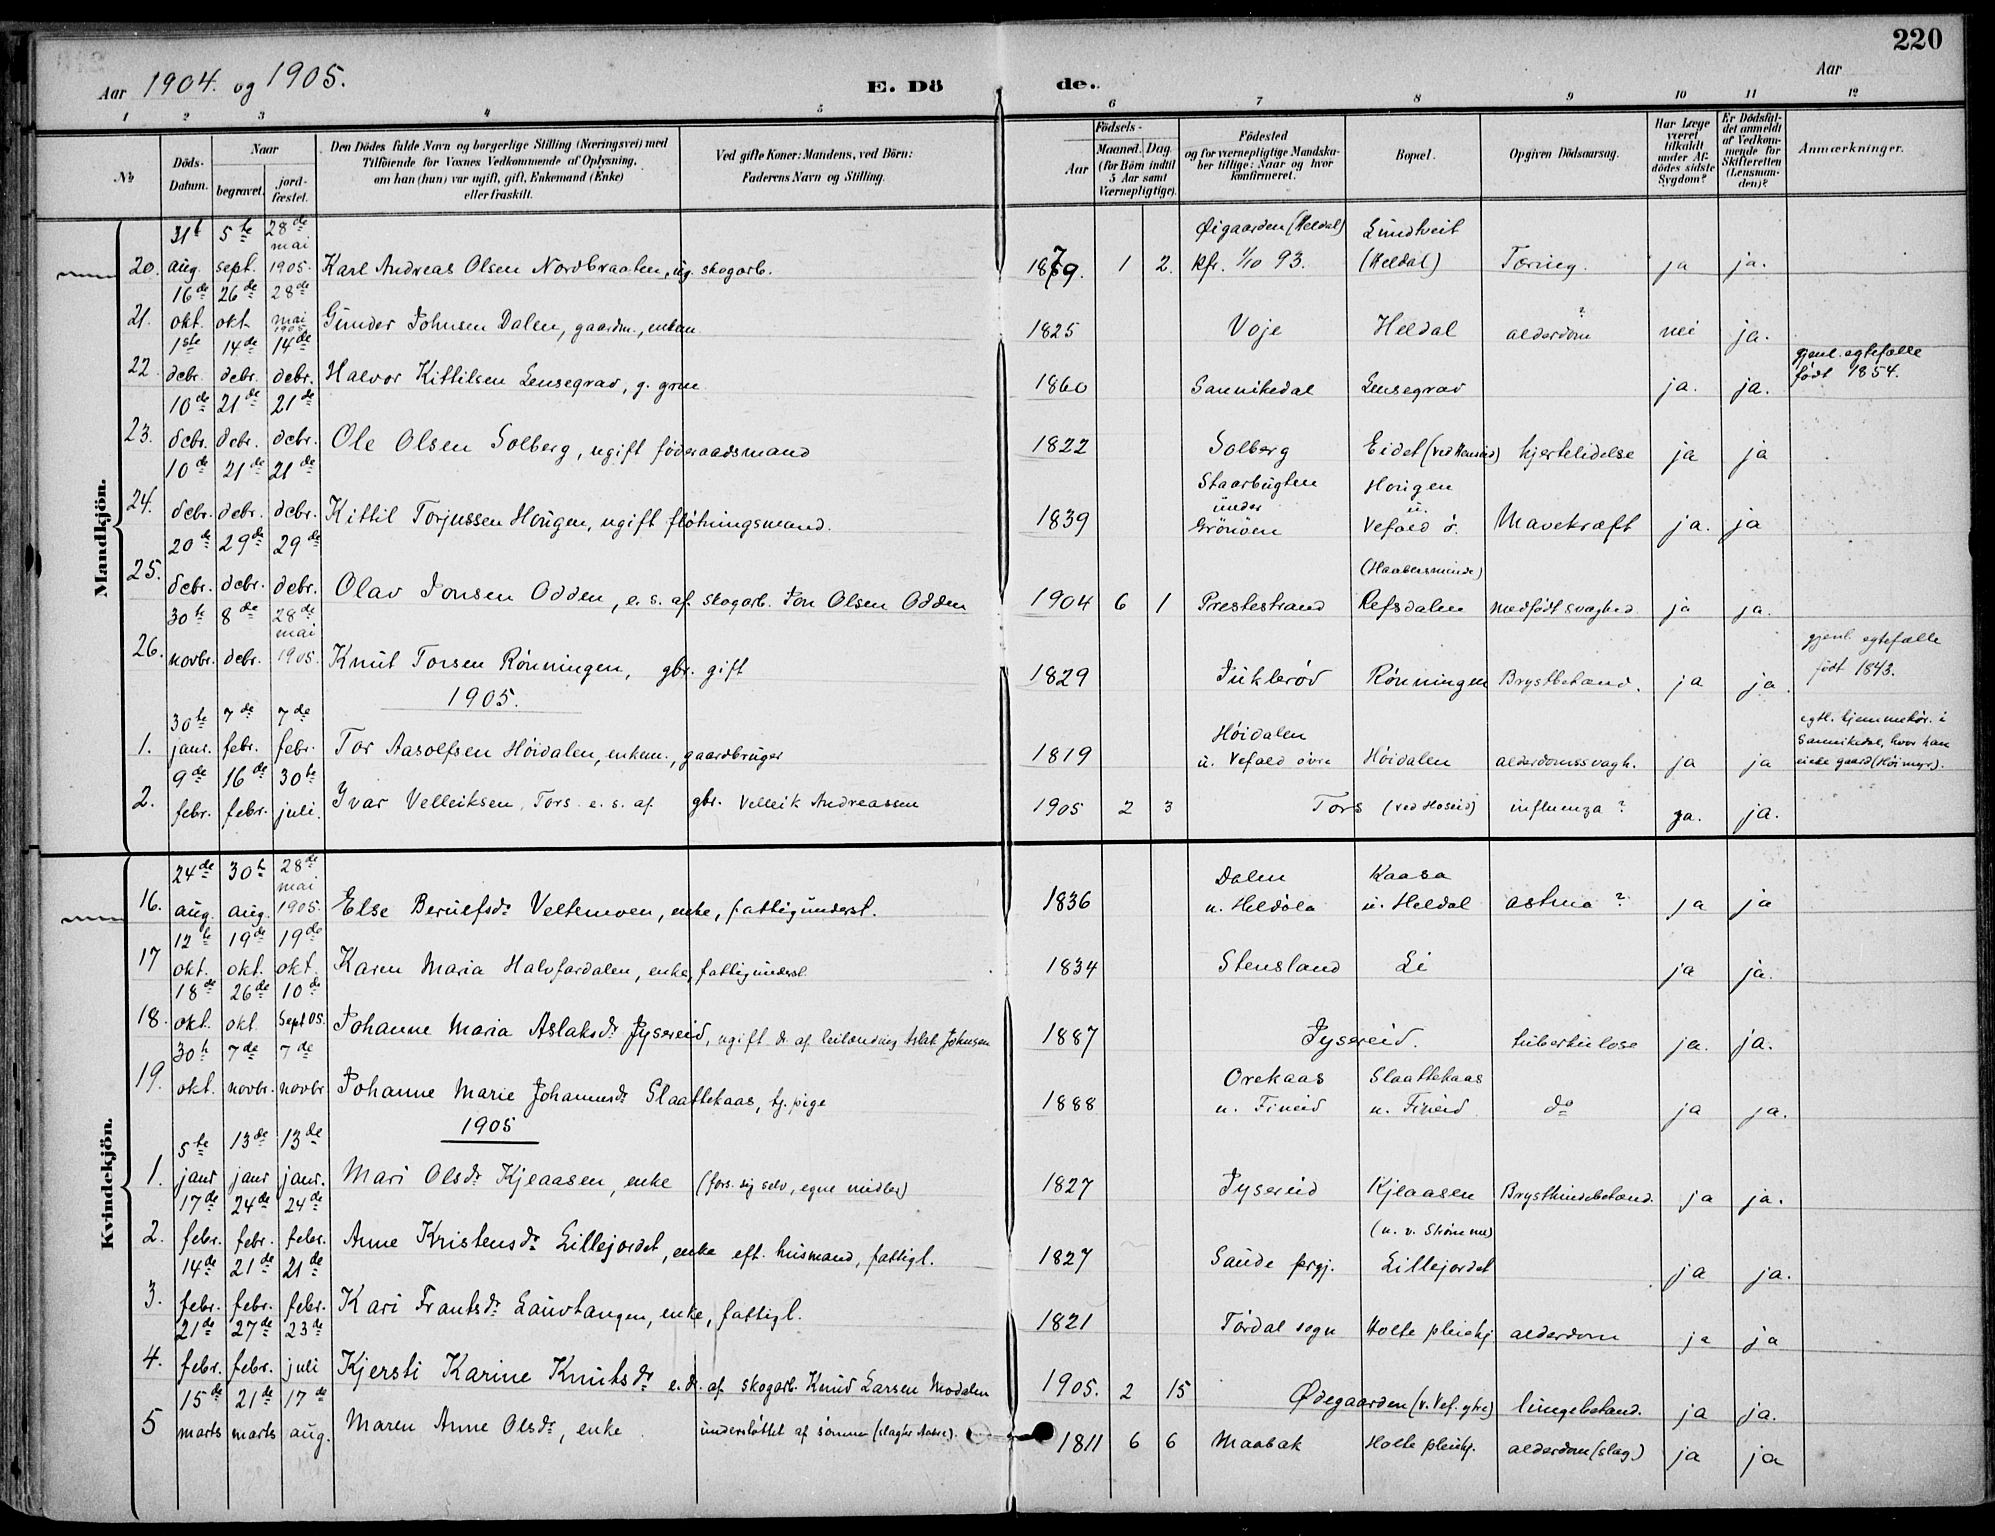 220
Aar 1904. og 1905.
E. Døde.
Aar
1 2 3 4 5 6 7 8 9 10 11 12
No
Döds-Datum.
Naar
begravet.
jord-fæstet.
Den Dödes fulde Navn og borgerlige Stilling (Næringsvei) med
Tilföiende for Voxnes Vedkommende af Oplysning,
om han (hun) var ugift, gift, Enkemand (Enke)
eller fraskilt.
Ved gifte Koner: Mandens, ved Börn:
Faderens Navn og Stilling.
Födsels-
Aar
Maaned. Dag.
(for Börn indtil
5 Aar samt
Værnepligtige).
Födested
og for værnepligtige Mandska-
ber tillige: Naar og hvor
konfirmeret.
Bopæl.
Opgiven Dödsaarsag.
Har Læge
været
tilkaldt
under Af-
dödes sidste
Sygdom?
Er Dödsfal-
det anmeldt
af Vedkom-
mende for
Skifteretten
(Lensman-
den)?
Anmærkninger.
Mandkjön.
20. 31t aug. 5te sept. 28de mai 1905. Karl Andreas Olsen Nordbraaten, ug. skogarb. 1879 1 2. Øigaarden (Heldal) kfr. 1/10 93. Lundtveit (Heldal) Tæring. ja ja.
21. 16de okt. 26de okt. 28de mai 1905 Gunder Johnsen Dalen, gaardm., enkem. 1825 Voje Heldal alderdom ? nei ja.
22 1ste debr. 14de debr. 14de debr. Halvor Kittilsen Lensegrav, g. grm. 1860 Sannikedal Lensegrav ja. ja. gjenl. egtefælle født 1854.
23. 10de debr. 21de debr. 21de debr. Ole Olsen Solberg, ugift føderaadsmand 1822 Solberg Eidet (ved Henseid) hjertelidelse ja ja
24. 10de debr. 21de debr. 21de debr. Kittil Torjussen Hougen, ugift fløtningsmand. 1839 Staarbugten under Grönöen Hougen u. Vefald ö. Mavekræft ja. ja
25. 20de debr. 29de debr. 29de debr. Olav Jonsen Odden, e. s. af skogarb. Jon Olsen Odden 1904 6 1 Prestestrand (Haabersminde) Refsdalen medfödt svaghed ja ja.
26. 30te novbr. 8de debr. 28de mai 1905. Knut Torsen Rønningen, gbr. gift 1829 Juklerød Rønningen Brystbetænd. ja ja. gjenl. egtefælle født 1843.
1905.
1. 30te janr. 7de febr. 7de febr. Tor Aasolfsen Høidalen, enkem., gaardbruger 1819 Høidalen u. Vefald øvre Høidalen alderdomssvagh. ja ja egtl. hjemmehør. i Sannikedal, hvor han eiede gaard (Høimyr).
2. 9de febr. 16de febr. 30te juli. Ivar Velleiksen, Tors e. s. af gbr. Velleik Andreassen 1905 2 3 Tors (ved Hoseid) influenza ? ja. ja.
Kvindekjön.
16. 24de aug. 30t aug. 28de mai 1905. Else Berulfsdr. Veltemoen, enke, fattigunderst. 1836 Dalen u. Heldöla Kaasa u. Heldal astma ? ja ja
17 12te okt. 19de okt. 19de okt. Karen Maria Halvfardalen, enke, fattigunderst. 1834 Stensland Li ja ja.
18. 18de okt. 26de okt. 10de Sept 05. Johanne Maria Aslaksdr. Jysereid, ugift d. af leilænding Aslak Johnsen 1887 Jysereid. tuberkulose ja. ja.
19. 30t okt. 7de novbr. 7de novbr Johanne Marie Johannesdr. Slaattekaas, tj. pige 1888 Orekaas u. Fineid Slaattekaas u. Fineid do ja ja.
1905
1. 5te janr 13de janr 13de janr. Mari Olsdr. Kjeaasen, enke (fors. sig selv, egne midler) 1827 Jysereid Kjeaasen Brysthindebetænd. ja ja.
2. 17de febr. 24de febr. 24de febr. Anne Kristensdr. Lillejordet, enke eft. husmand, fattigl. 1827 Saude prgj. (u. v. Strømme) Lillejordet ja ja.
3. 14de febr. 21de febr. 21de febr. Kari Frantsdr. Lauvtangen, enke, fattigl. 1821 Tørdal sogn Holte pleiehj. alderdom ja ja
4. 21de febr. 27de febr. 23de juli Kjersti Karine Knutsdr. e. d. af skogarb. Knud Larsen Modalen 1905. 2 15 Ødegaarden (v. Vef. ytre) lungebetænd. ja ja.
5 15de marts 21de marts 17de aug. Maren Anne Olsdr., enke understøttet af sønner 1811 6 6 Maabak Holte pleiehj. alderdom (slag) ja ja